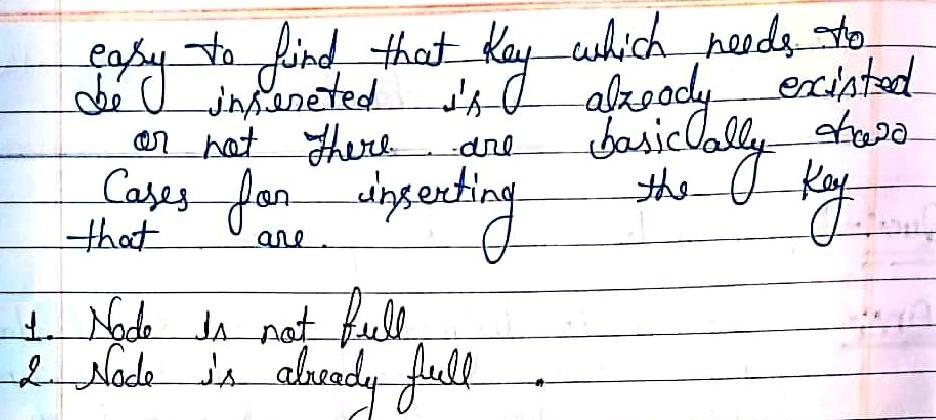 easy to find that key which needs to
be insereted is already existed
or not there are basiclally two
Cases for inserting the key
that are.
1. Node is not full
2. Node is already full .